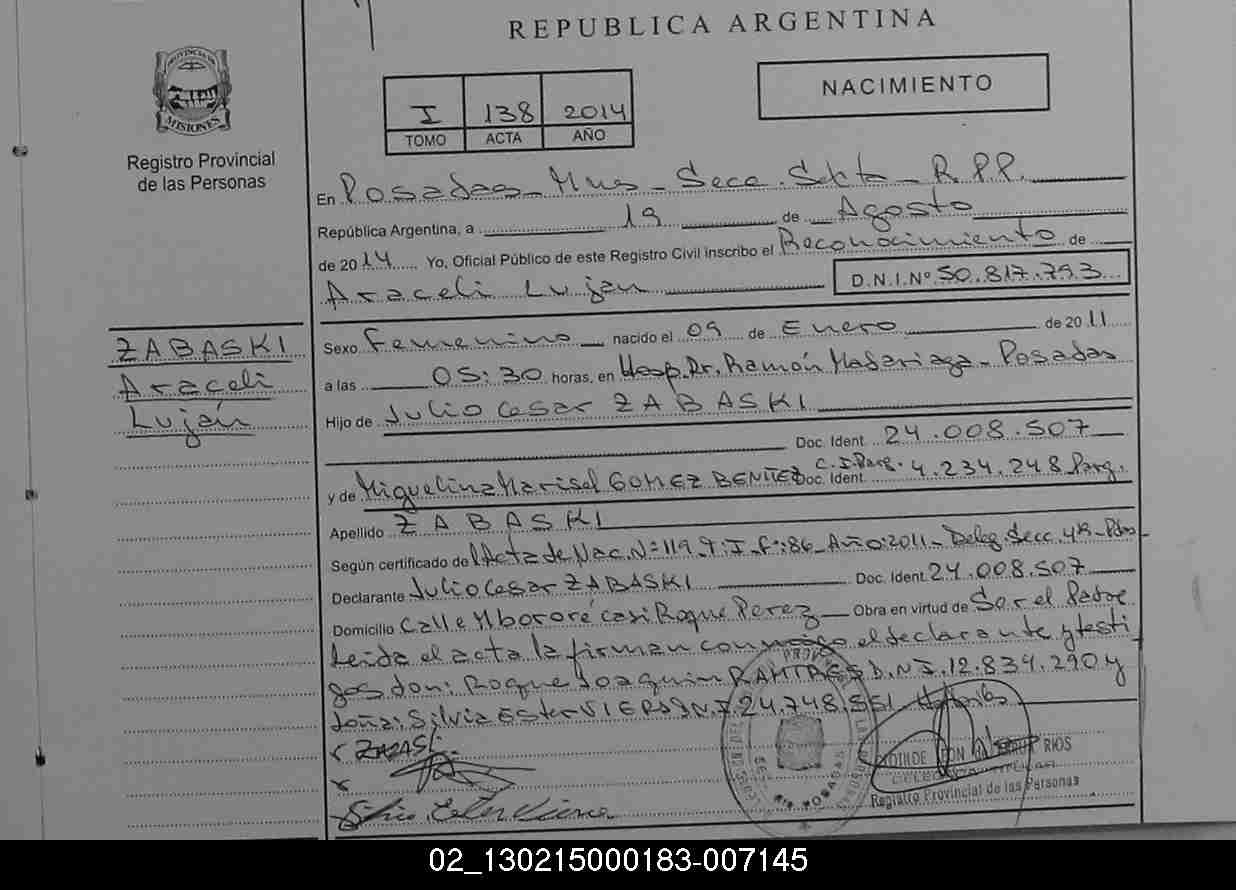 REPUBLICA ARGENTINA
PROVINCIA DE
MISIONES
Registro Provincial
de las Personas
I 138 2014
TOMO ACTA AÑO
NACIMIENTO
En Posadas - Mnes - Secc. Sexta - R.P.P.
República Argentina, a 19 de Agosto
de 2014 Yo, Oficial Público de este Registro Civil inscribo el Reconocimiento de
Araceli Luján D.N.I.Nº 50.817.793
ZABASKI
Araceli
Luján
Sexo Femenino nacido el 09 de Enero de 2011
a las 05:30 horas, en Hosp. Dr. Ramón Madariaga - Posadas
Hijo de Julio Cesar ZABASKI
Doc. Ident. 24.008.507
y de Miguelina Marisel GOMEZ BENITEZ Doc. Ident. C.I.Parg. 4.234.248 Parg.
Apellido ZABASKI
Según certificado de Acta de Nac. Nº 119 - T: I - Fº: 86 - Año: 2011 - Deleg. Secc. 4ta - Pdas
Declarante Julio Cesar ZABASKI Doc. Ident. 24.008.507
Domicilio Calle Mbororé casi Roque Perez Obra en virtud de Ser el Padre
Leida el acta la firman conmigo el declarante y testi
gos don: Roque Joaquin RAMIRES D.N.I. 12.834.290 y
doña: Silvia Ester VIERA D.N.I 24.748.551
ZABASKI
RIOS
Registro Provincial de las Personas
02_130215000183-007145